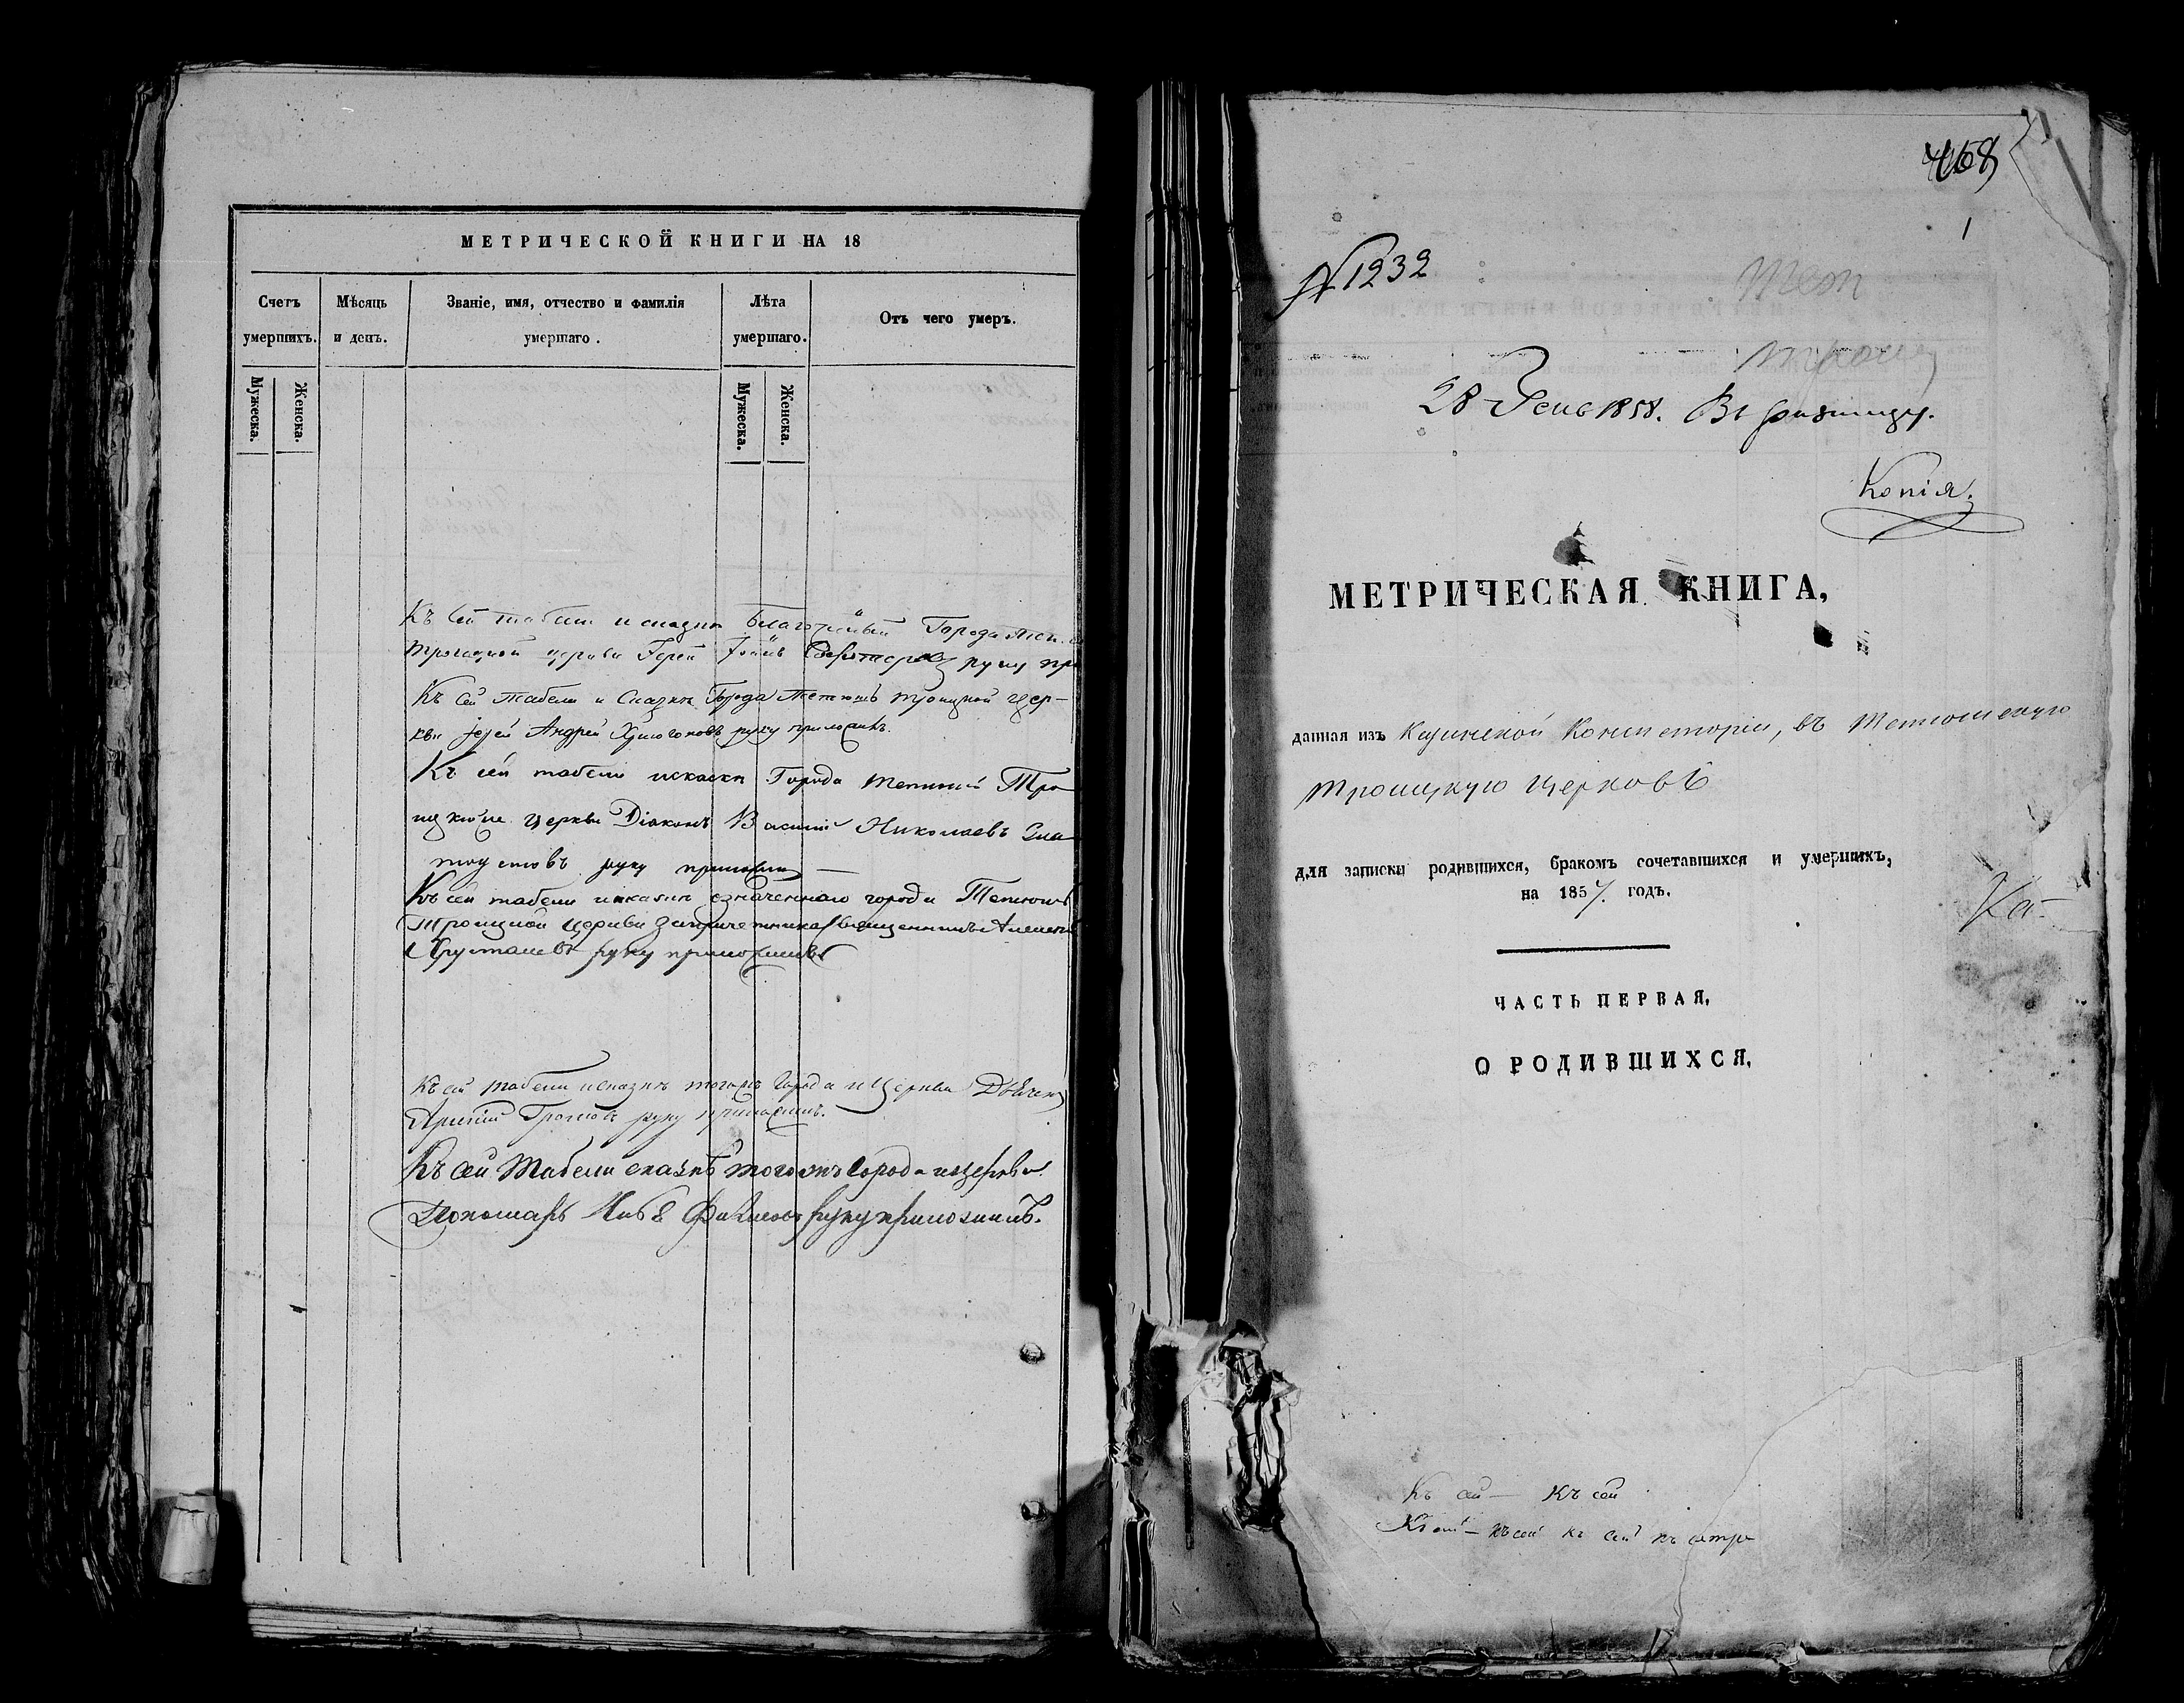 МЕТРИЧЕСКОЙ КНИГИ НА 18
Счетъ умершихъ.
Мѣсяць и день.
Званіе, имя, отчество и фамилія умершаго.
Лѣта умершаго.
Отъ чего умеръ.
Мужеска.
Женска.
Мужеска.
Женска.
Къ сей табели и сказкѣ Города
Троицкой церкви Іерей руку
Къ сей табели и сказкѣ Города Тетюшъ Троицкой цер-
кви Іерей Андрей руку приложилъ.
Къ сей табели и сказки Города Тетюшъ Тро
церкви Діаконъ Василий Николаевъ Зла
тоустовъ руку приложилъ
Къ сей табели и сказки означеннаго города Тетюшъ
Троицкой Церкви
Хрусталевъ руку приложилъ
Къ сей табели и сказкѣ тогожъ Города и Церкви Дьячекъ
руку приложилъ.
Къ сей Табели сказкѣ тогожъ Города и церкви
Пономарь руку приложилъ.
468
1
N 1232
Тет
Троиц
28 1858. Въ ризницу.
Копія.
МЕТРИЧЕСКАЯ КНИГА,
данная изъ Казанской Консисторіи, въ Тетюшскую
Троицкую церковь
для записки родившихся, бракомъ сочетавшихся и умершихъ,
на 1857. годъ.
Ка-
ЧАСТЬ ПЕРВАЯ,
О РОДИВШИХСЯ,
Къ сей — Къ сей
Къ сей — къ сей къ сей къ